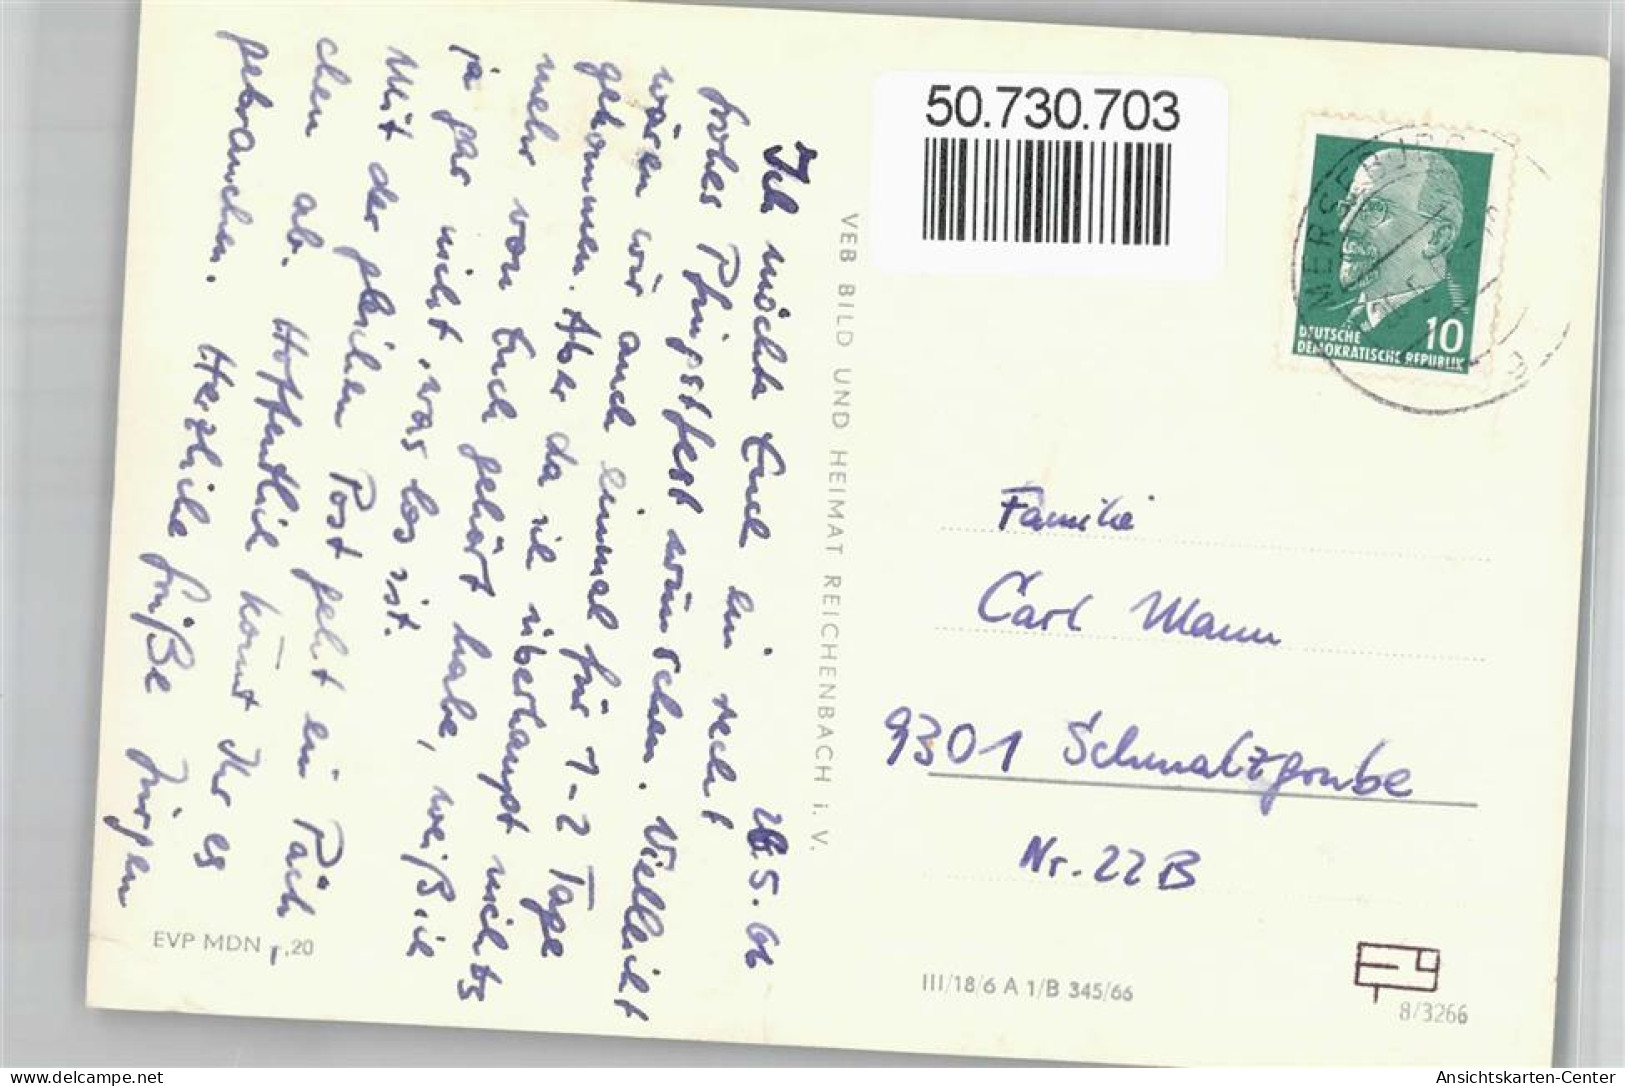 26.5.66
Ich möchte Euch ein recht
frohes Pfingstfest wünschen. Vielleicht
wären wir auch einmal für 1-2 Tage
gekommen. Aber da ich überhaupt nichts
mehr von Euch gehört habe, weiß ich
ja gar nicht, was los ist.
Mit der gleichen Post geht ein Päck
chen ab. Hoffentlich könnt Ihr es
gebrauchen. Herzliche Grüße Jürgen
EVP MDN -,20
VEB BILD UND HEIMAT REICHENBACH i. V.
50.730.703
MERSEBURG
DEUTSCHE
DEMOKRATISCHE REPUBLIK
10
Familie
Carl Mann
9301 Schmalzgrube
Nr. 22B
III/18/6 A 1/B 345/66
8/3266
www.delcampe.net
Ansichtskarten-Center